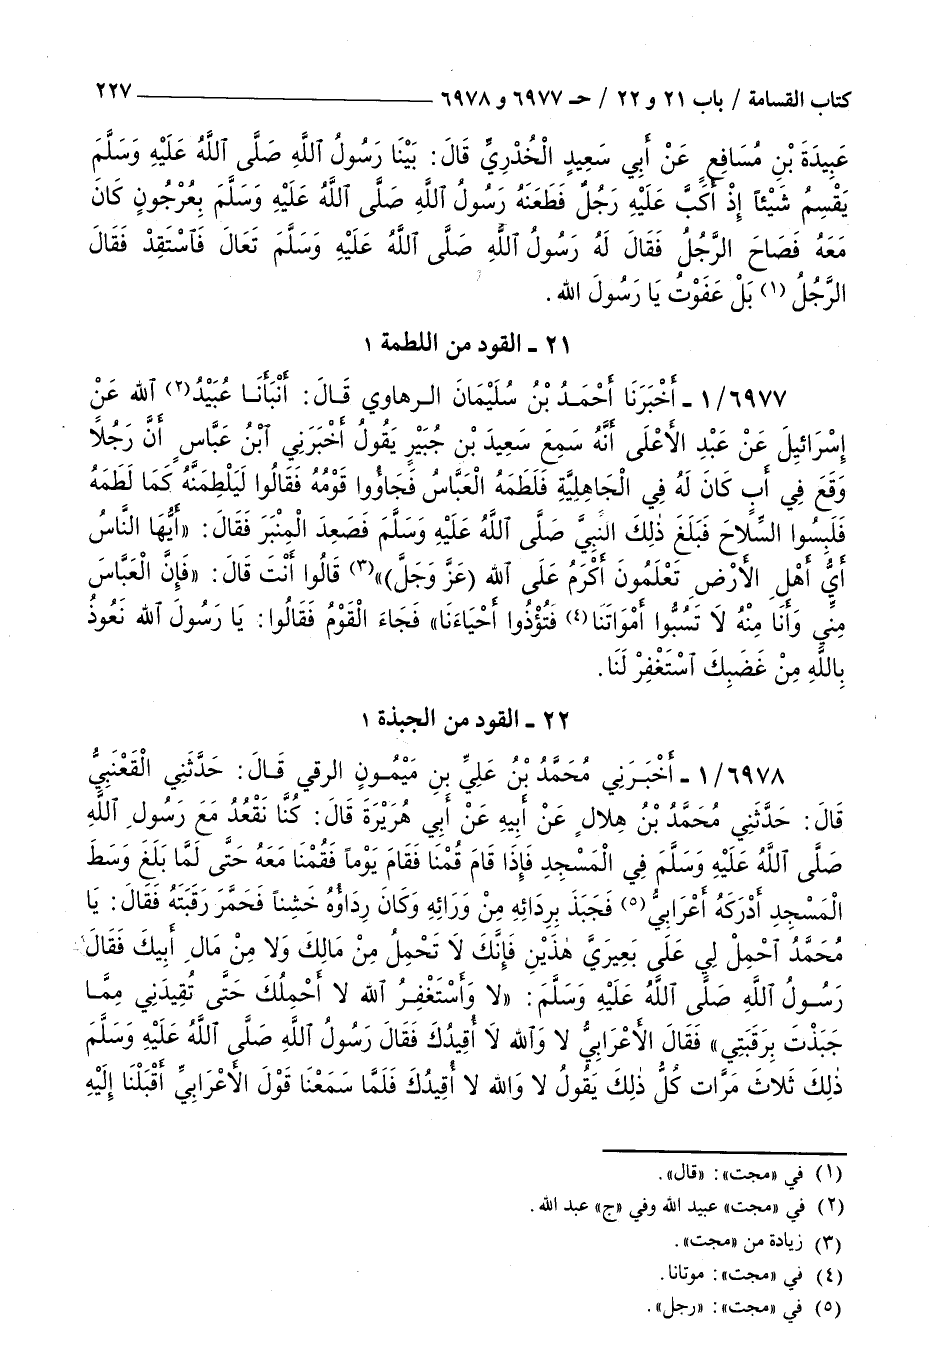 كتاب القسامة / باب ٢١ و ٢٢ / حـ ٦٩٧٧ و ٦٩٧٨ ــــــــــــ ٢٢٧
عَبِيدَةَ بْنِ مُسَافِعٍ عَنْ أَبِي سَعِيدٍ الْخُدْرِيِّ قَالَ: بَيْنَا رَسُولُ ٱللَّهِ صَلَّى ٱللَّهُ عَلَيْهِ وَسَلَّمَ
يَقْسِمُ شَيْئاً إِذْ أَكَبَّ عَلَيْهِ رَجُلٌ فَطَعَنَهُ رَسُولُ ٱللَّهِ صَلَّى ٱللَّهُ عَلَيْهِ وَسَلَّمَ بِعُرْجُونٍ كَانَ
مَعَهُ فَصَاحَ الرَّجُلُ فَقَالَ لَهُ رَسُولُ ٱللَّهِ صَلَّى ٱللَّهُ عَلَيْهِ وَسَلَّمَ تَعَالَ فَٱسْتَقِدْ فَقَالَ
الرَّجُلُ (١) بَلْ عَفَوْتُ يَا رَسُولَ الله.
٢١ ـ القود من اللطمة ١
٦٩٧٧/ ١ ـ أَخْبَرَنَا أَحْمَدُ بْنُ سُلَيْمَانَ الرهاوي قَالَ: أَنْبَأَنَا عُبَيْدُ(٢) ٱلله عَنْ
إِسْرَائِيلَ عَنْ عَبْدِ الأَعْلَى أَنَّهُ سَمِعَ سَعِيدَ بْنِ جُبَيْرٍ يَقُولُ أَخْبَرَنِي ٱبْنُ عَبَّاسٍ أَنَّ رَجُلاً
وَقَعَ فِي أَبٍ كَانَ لَهُ فِي الْجَاهِلِيَّةِ فَلَطَمَهُ الْعَبَّاسُ فَجَاؤُوا قَوْمُهُ فَقَالُوا لَيَلْطِمَنَّهُ كَمَا لَطَمَهُ
فَلَبِسُوا السِّلاَحَ فَبَلَغَ ذٰلِكَ النَّبِيَّ صَلَّى ٱللَّهُ عَلَيْهِ وَسَلَّمَ فَصَعِدَ الْمِنْبَرَ فَقَالَ: «أَيُّهَا النَّاسُ
أَيُّ أَهْلِ الأَرْضِ تَعْلَمُونَ أَكْرَمُ عَلَى ٱلله (عَزَّ وَجَلَّ)»(٣) قَالُوا أَنْتَ قَالَ: «فَإِنَّ الْعَبَّاسَ
مِنِّي وَأَنَا مِنْهُ لَا تَسُبُّوا أَمْوَاتَنَا(٤) فَتُؤْذُوا أَحْيَاءَنَا» فَجَاءَ الْقَوْمُ فَقَالُوا: يَا رَسُولَ ٱلله نَعُوذُ
بِٱللَّهِ مِنْ غَضَبِكَ ٱسْتَغْفِرْ لَنَا.
٢٢ ـ القود من الجبذة ١
٦٩٧٨/ ١ ـ أَخْبَرَنِي مُحَمَّدُ بْنُ عَلِيِّ بنِ مَيْمُونٍ الرقي قَالَ: حَدَّثَنِي الْقَعْنَبِيُّ
قَالَ: حَدَّثَنِي مُحَمَّدُ بْنُ هِلالٍ عَنْ أَبِيهِ عَنْ أَبِي هُرَيْرَةَ قَالَ: كُنَّا نَقْعُدُ مَعَ رَسُولِ ٱللَّهِ
صَلَّى ٱللَّهُ عَلَيْهِ وَسَلَّمَ فِي الْمَسْجِدِ فَإِذَا قَامَ قُمْنَا فَقَامَ يَوْماً فَقُمْنَا مَعَهُ حَتَّى لَمَّا بَلَغَ وَسَطَ
الْمَسْجِدِ أَدْرَكَهُ أَعْرَابِيٌّ(٥) فَجَبَذَ بِرِدَائِهِ مِنْ وَرَائِهِ وَكَانَ رِدَاؤُهُ خَشْناً فَحَمَّرَ رَقَبَتَهُ فَقَالَ: يَا
مُحَمَّدُ ٱحْمِلْ لِي عَلَى بَعِيرَيَّ هٰذَيْنِ فَإِنَّكَ لَا تَحْمِلُ مِنْ مَالِكَ وَلَا مِنْ مَالِ أَبِيكَ فَقَالَ
رَسُولُ ٱللَّهِ صَلَّى ٱللَّهُ عَلَيْهِ وَسَلَّمَ: «لا وَأَسْتَغْفِرُ ٱلله لا أَحْمِلُكَ حَتَّى تُقِيدَنِي مِمَّا
جَبَذْتَ بِرَقَبَتِي» فَقَالَ الأَعْرَابِيُّ لا وَٱلله لَا أُقِيدُكَ فَقَالَ رَسُولُ ٱللَّهِ صَلَّى ٱللَّهُ عَلَيْهِ وَسَلَّمَ
ذٰلِكَ ثَلاثَ مَرَّات كُلُّ ذٰلِكَ يَقُولُ لا وَٱلله لا أُقِيدُكَ فَلَمَّا سَمَعْنَا قَوْلَ الأَعْرَابِيِّ أَقْبَلْنَا إِلَيْهِ
(١) في «مجت»: «قال».
(٢) في «مجت» عبيد الله وفي «ج» عبد الله.
(٣) زيادة من «مجت».
(٤) في «مجت»: موتانا.
(٥) في «مجت»: «رجل».